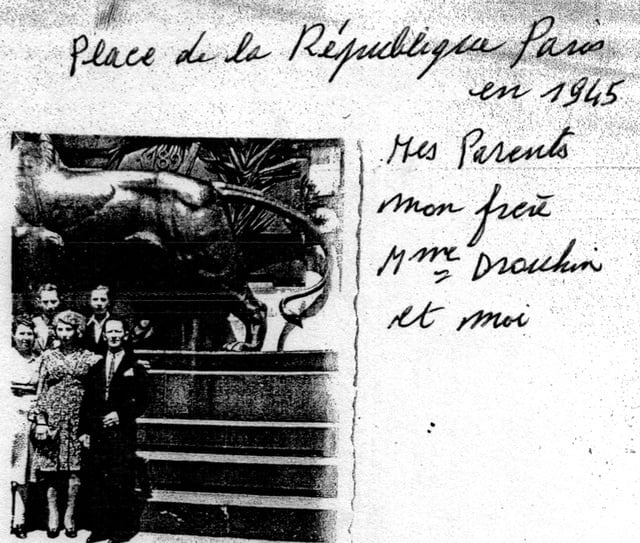 Place de la République Paris
en 1945
Mes Parents
mon frère
Mme Drouhin
et moi
1789